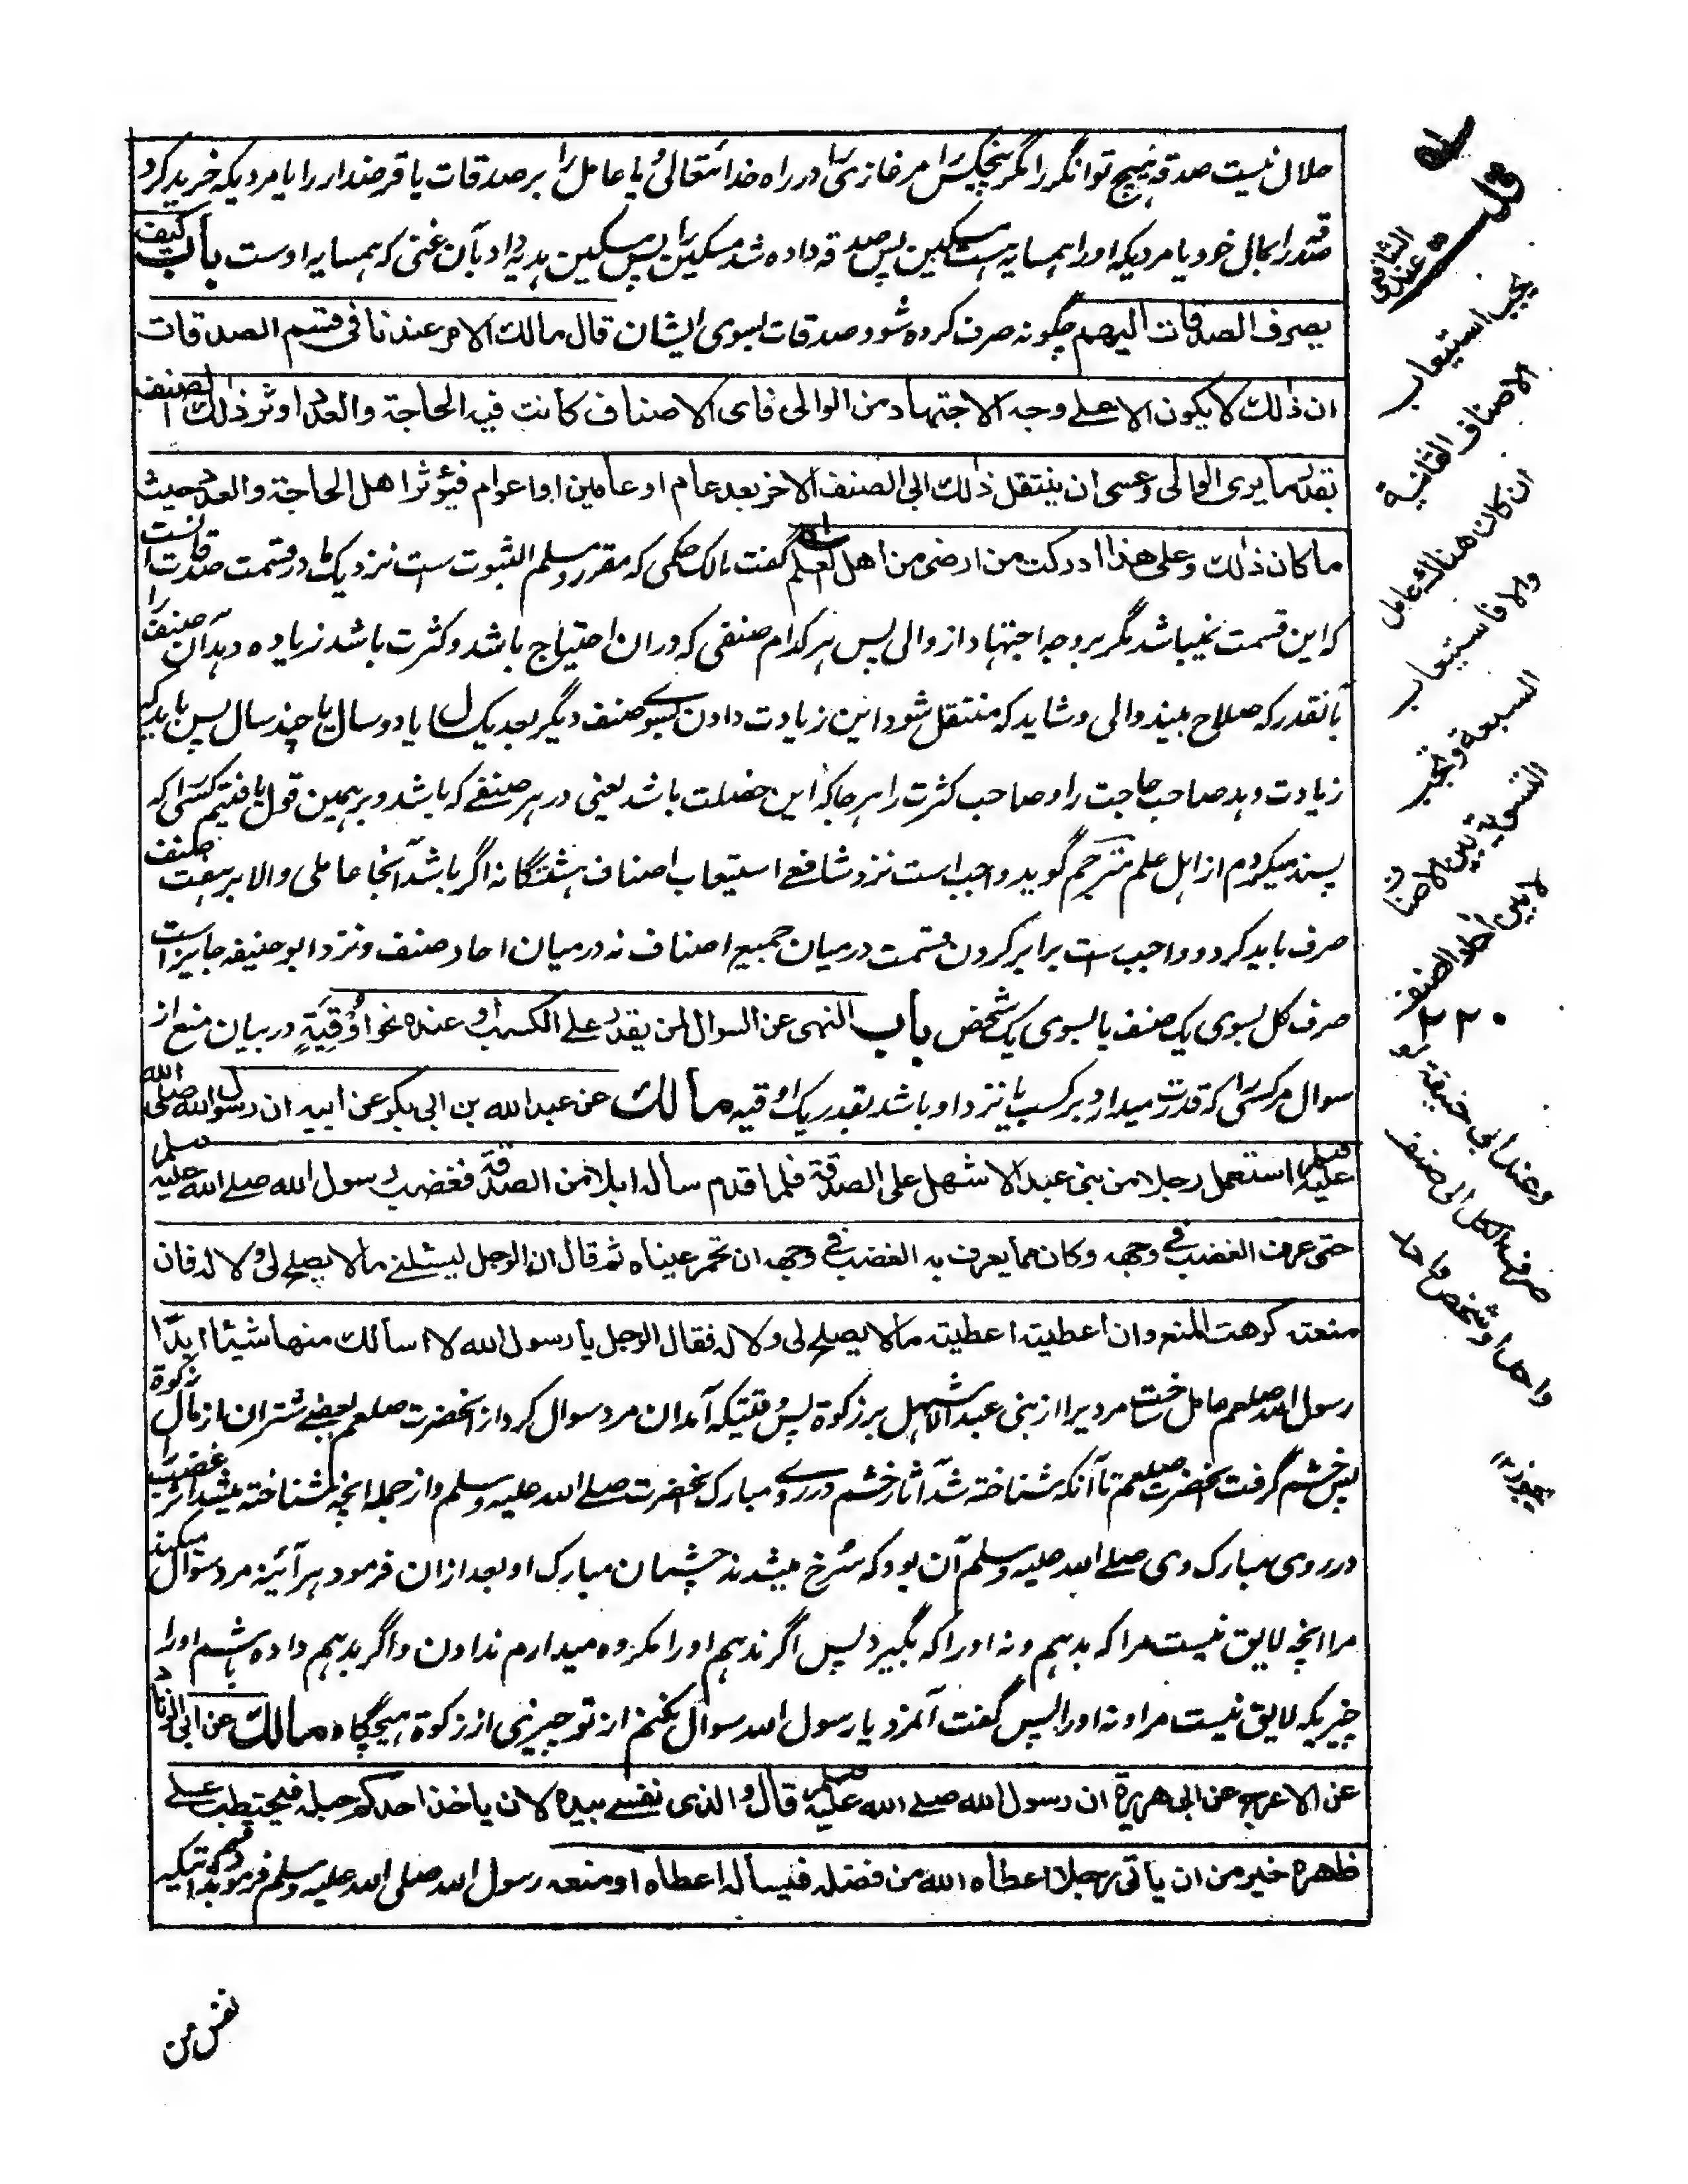 حلال نیست صدقه هیچ توانگر را مگر پنج کس را مر غازی را در راه خدا تعالیٰ یا عامل را بر صدقات یا قرضدار را یا مردیکه خرید کرد
صدقه را بمال خود یا مردیکه او را همسایه هست مسکین پس صدقه داده شد مسکین را پس مسکین هدیه داد بآن غنی که همسایه اوست باب کیف
یصرف الصدقات الیهم چگونه صرف کرده شود صدقات بسوی ایشان قال مالك الامر عندنا فی قسم الصدقات
ان ذلك لا یکون الا علی وجه الاجتهاد من الوالی فای الاصناف کانت فیه الحاجة والعدد اوثر ذلك الصنف
بقدر ما یری الوالی وعسی ان ینتقل ذلك الی الصنف الاخر بعد عام او عامین او اعوام فیؤثر اهل الحاجة والعدد حیث
ما کان ذلك وعلی هذا ادرکت من ارضی من اهل العلم گفت مالک حکمی که مقرر و مسلم الثبوت ست نزدیک ما در قسمت صدقات آنست
که این قسمت نمیباشد مگر بر وجه اجتهاد از والی پس هر کدام صنفی که در ان احتیاج باشد و کثرت باشد زیاده دهد آن صنف را
بآنقدر که صلاح بیند والی و شاید که منتقل شود این زیادت دادن بسوی صنف دیگر بعد یک سال یا دو سال یا چند سال پس باید که
زیادت دهد صاحب حاجت را و صاحب کثرت را هر جا که این خصلت باشد یعنی در هر صنفے که باشد و بر همین قول یافتیم کسی را که
پسند میکردم از اهل علم مترجم گوید واجب است نزد شافعے استیعاب اصناف هشتگانه اگر باشد آنجا عاملی والا بر هفت صنف
صرف باید کرد و واجب ست برابر کردن قسمت درمیان جمیع اصناف نه درمیان احاد صنف و نزد ابو حنیفه جایز است
صرف کل بسوی یک صنف یا بسوی یک شخص باب النهی عن السوال لمن یقدر علی الکسب او عنده نحو اوقیة در بیان منع از
سوال مر کسی را که قدرت میدارد بر کسب یا نزد او باشد بقدر یک اوقیه مالك عن عبد الله بن ابی بکر عن ابیه ان رسول الله صلی الله
علیه وسلم استعمل رجلا من بنی عبد الاشهل علی الصدقة فلما قدم ساله ابلا من الصدقة فغضب رسول الله صلے الله علیه وسلم
حتی عرف الغضب فی وجهه وکان مما یعرف به الغضب فی وجهه ان تحمر عیناه ثم قال ان الرجل لیسئلنی ما لا یصلح لی ولا له فان
منعته کرهت المنع وان اعطیته اعطیته ما لا یصلح لی ولا له فقال الرجل یا رسول الله لا اسالك منها شیئا ابدا
رسول الله صلعم عامل ساخت مردیرا از بنی عبد الاشهل بر زکوة پس وقتیکه آمد ان مرد سوال کرد از آنحضرت صلعم بعضے شتران از مال زکوة
پس خشم گرفت آنحضرت صلعم تا آنکه شناخته شد آثار خشم در روے مبارک آنحضرت صلے الله علیه وسلم و از جمله آنچه شناخته میشد اثر غضب را
در روی مبارک وی صلے الله علیه وسلم آن بود که سرخ میشدند چشمان مبارک او بعد ازان فرمود هر آئینه مرد سوال میکند
مرا انچه لایق نیست مرا که بدهم و نه او را که بگیرد پس اگر ندهم او را مکروه میدارم ندادن و اگر بدهم داده باشم او را
چیزیکه لایق نیست مرا و نه او را پس گفت آنمرد یا رسول الله سوال نکنم از تو چیزی از زکوة هیچگاه مالك عن ابی الزناد
عن الاعرج عن ابی هریرة ان رسول الله صلے الله علیه وسلم قال والذی نفسے بیده لان یاخذ احدکم حبله فیحتطب علے
ظهره خیر من ان یاتی رجلا اعطاه الله من فضله فیساله اعطاه او منعه رسول الله صلی الله علیه وسلم فرمود قسم بذاتیکه
نفس من
قلت
عند الشافعی
یجب استیعاب
الاصناف الثمانیة
ان کان هنالك عامل
والا فاستیعاب
السبعة وتجب
التسویة بین الاصناف
لا بین احاد الصنف
۲۲۰
وعند ابی حنیفة لو
صرف الکل الی صنف
واحد او شخص واحد
یجوز ۱۲